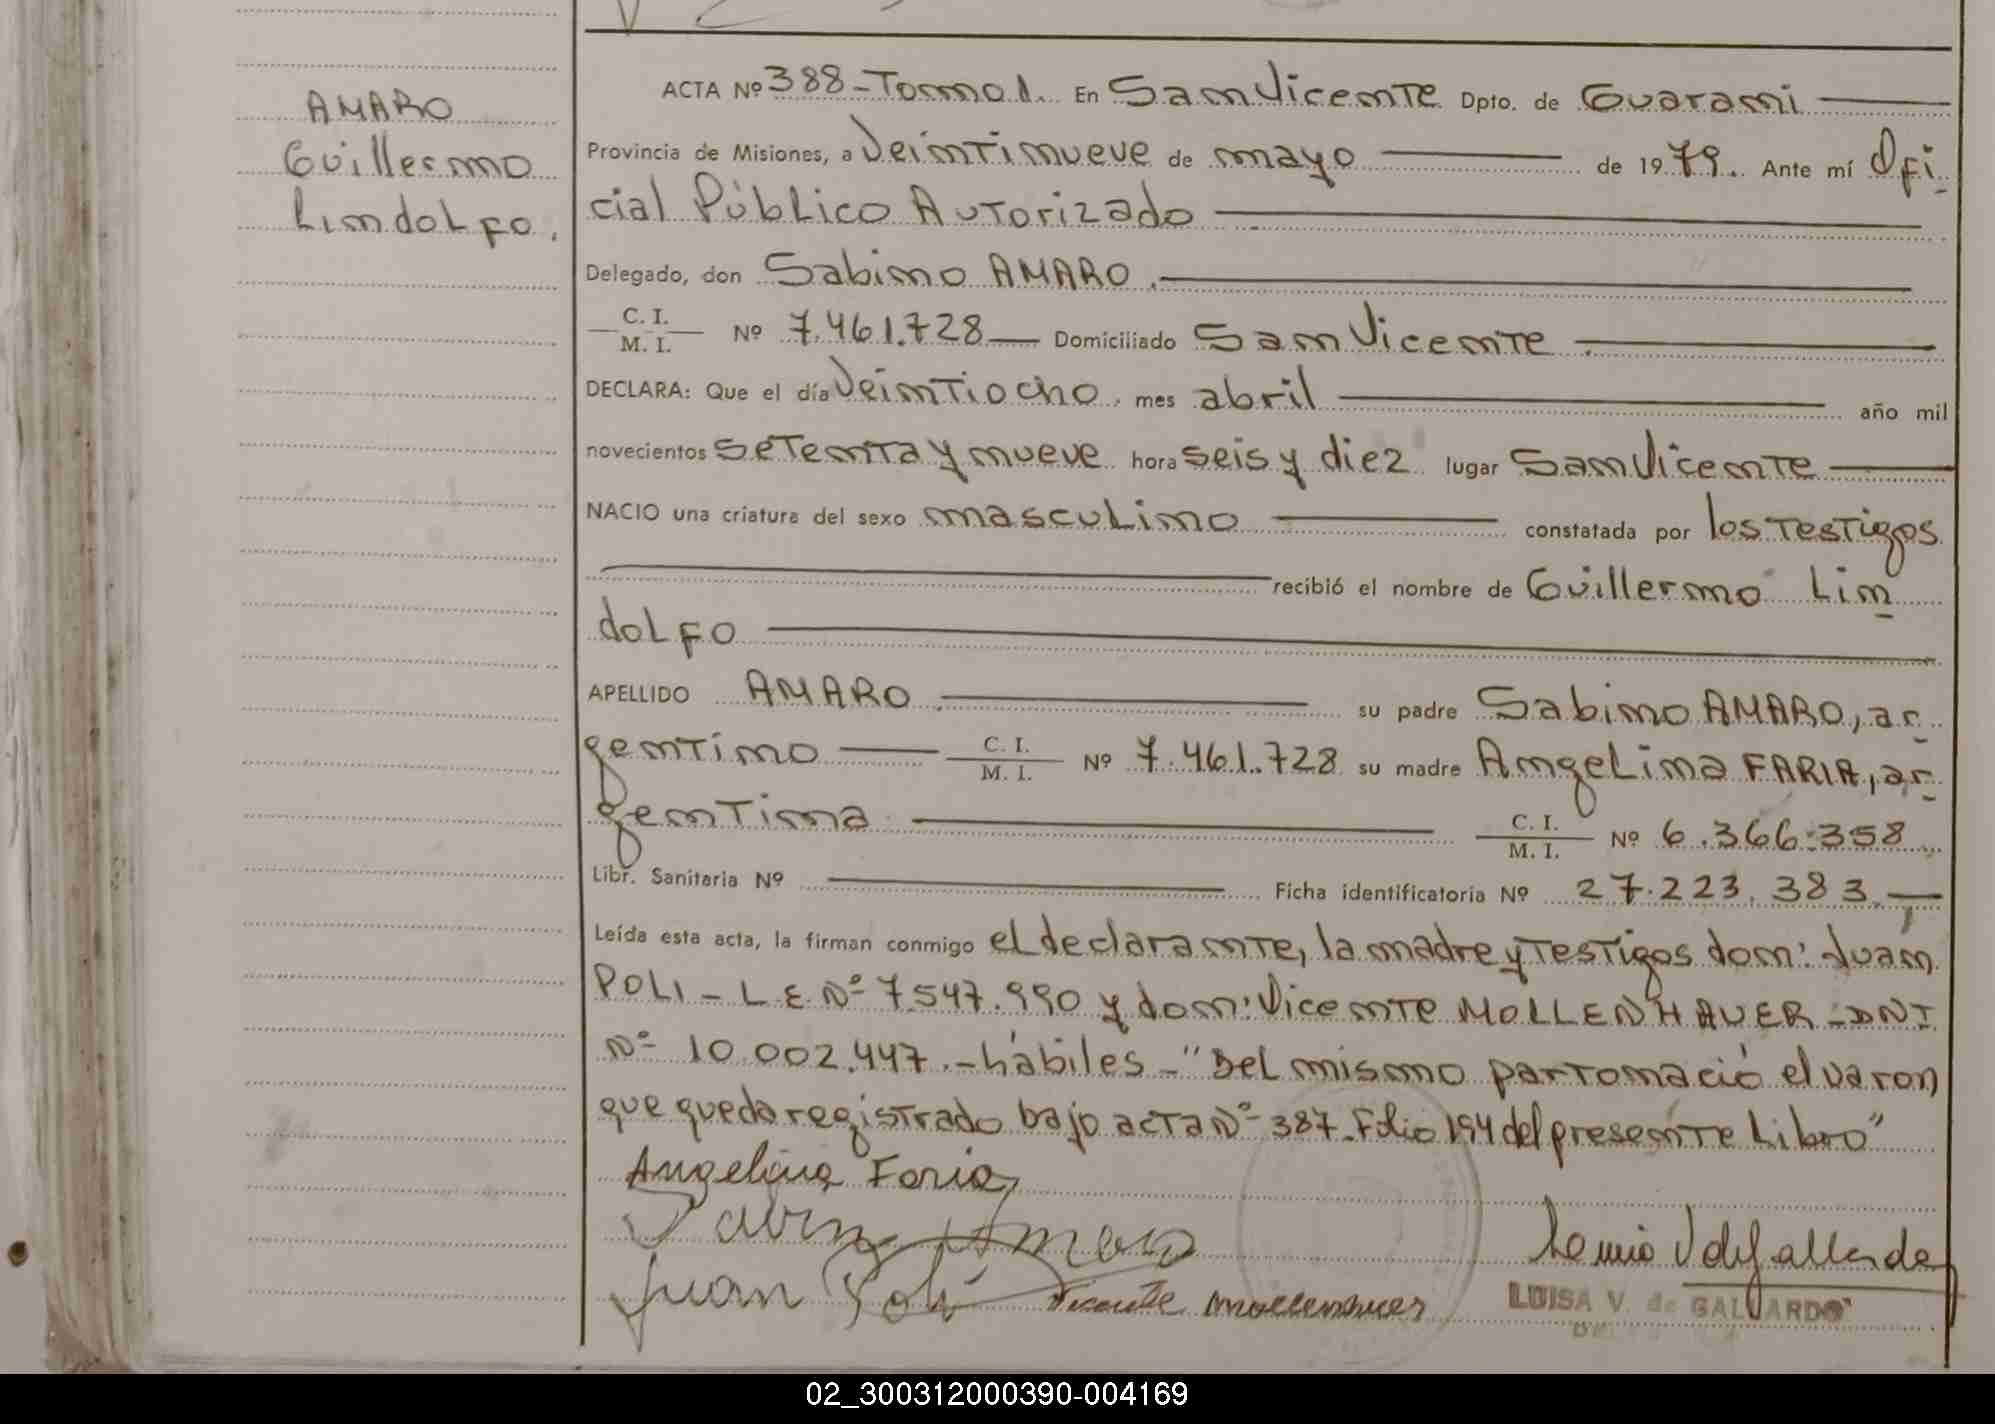 AMARO
Guillermo
Lindolfo.
ACTA Nº 388-Tomo 1. En San Vicente Dpto. de Guarani
Provincia de Misiones, a Veintinueve de mayo de 1979. Ante mí Ofi
cial Público Autorizado
Delegado, don Sabino AMARO.
C. I.
M. I. Nº 7.461.728 Domiciliado San Vicente
DECLARA: Que el día Veintiocho, mes abril año mil
novecientos setenta y nueve hora seis y diez lugar San Vicente
NACIO una criatura del sexo masculino constatada por los testigos
recibió el nombre de Guillermo Lin
dolfo
APELLIDO AMARO su padre Sabino AMARO, ar
gentino C. I.
M. I. Nº 7.461.728 su madre Angelina FARIA, ar
gentina C. I.
M. I. Nº 6.366.358
Libr. Sanitaria Nº Ficha identificatoria Nº 27.223.383.-
Leída esta acta, la firman conmigo el declarante, la madre y testigos don: Juan
POLI - L E. Nº 7.547.990 y don: Vicente MOLLENHAUER - DNI
Nº 10.002.447.- hábiles - "Del mismo parto nació el varon
que queda registrado bajo acta Nº 387. Folio 194 del presente Libro"
Angelina Faria
Sabino Amaro
Juan Poli Vicente Mollenhauer
LUISA V. de GALLARDO
02_300312000390-004169